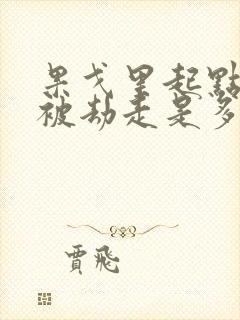 果戈里起點
被劫走是多
賈飛